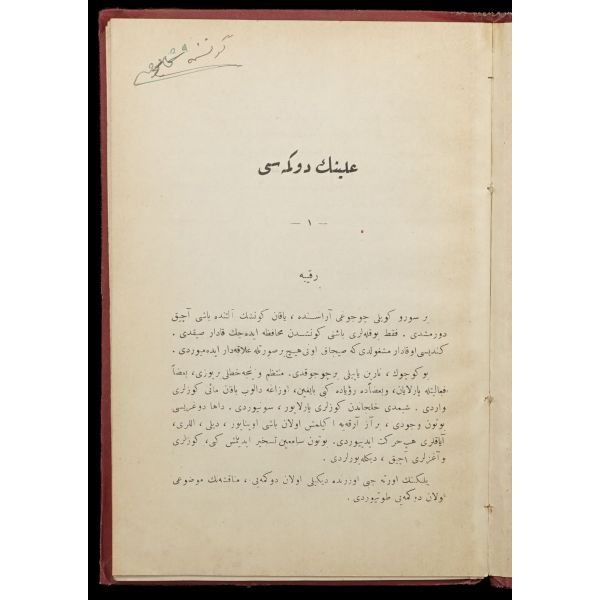 علینك دوكمه سی
— ١ —
رقیه
بر سورو كویلی چوجوغی آراسنده ، یاقان كونشك آلتنده باشی آچیق
دورمشدی . فقط بوقلهلری باشی كونشدن محافظه ایده جك قادار صیقدی .
كندیسی اوقادار مشغولدی كه صیجاق اونی هیچ بر صورتله علاقه دار ایده میوردی .
بو كوچوك ، نارین یاپیلی بر چوجوقدی . منتظم و نجه خطلی بر یوزی ، بعضاً
فعالیتله پارلایان ، وبعضاًده رؤیاده كبی بایغین ، اوزاغه دالوب باقان مائی كوزلری
واردی . شیمدی خلجاندن كوزلری پارلایور ، سوینیوردی . داها دوغریسی
بوتون وجودی ، بر آز آرقه یه اكیلمش اولان باشی اوینایور ، دیلی ، اللری،
آیاقلری هپ حركت ایدییوردی . بوتون سامعین تسخیر ایدیلمش كبی ، كوزلری
و آغزلری آچیق ، دیكله یورلردی .
یلكنك اورته جی اوزرنده دیكیلی اولان دوكمه یی ، مناقشه نك موضوعی
اولان دوكمه یی طوتیوردی .